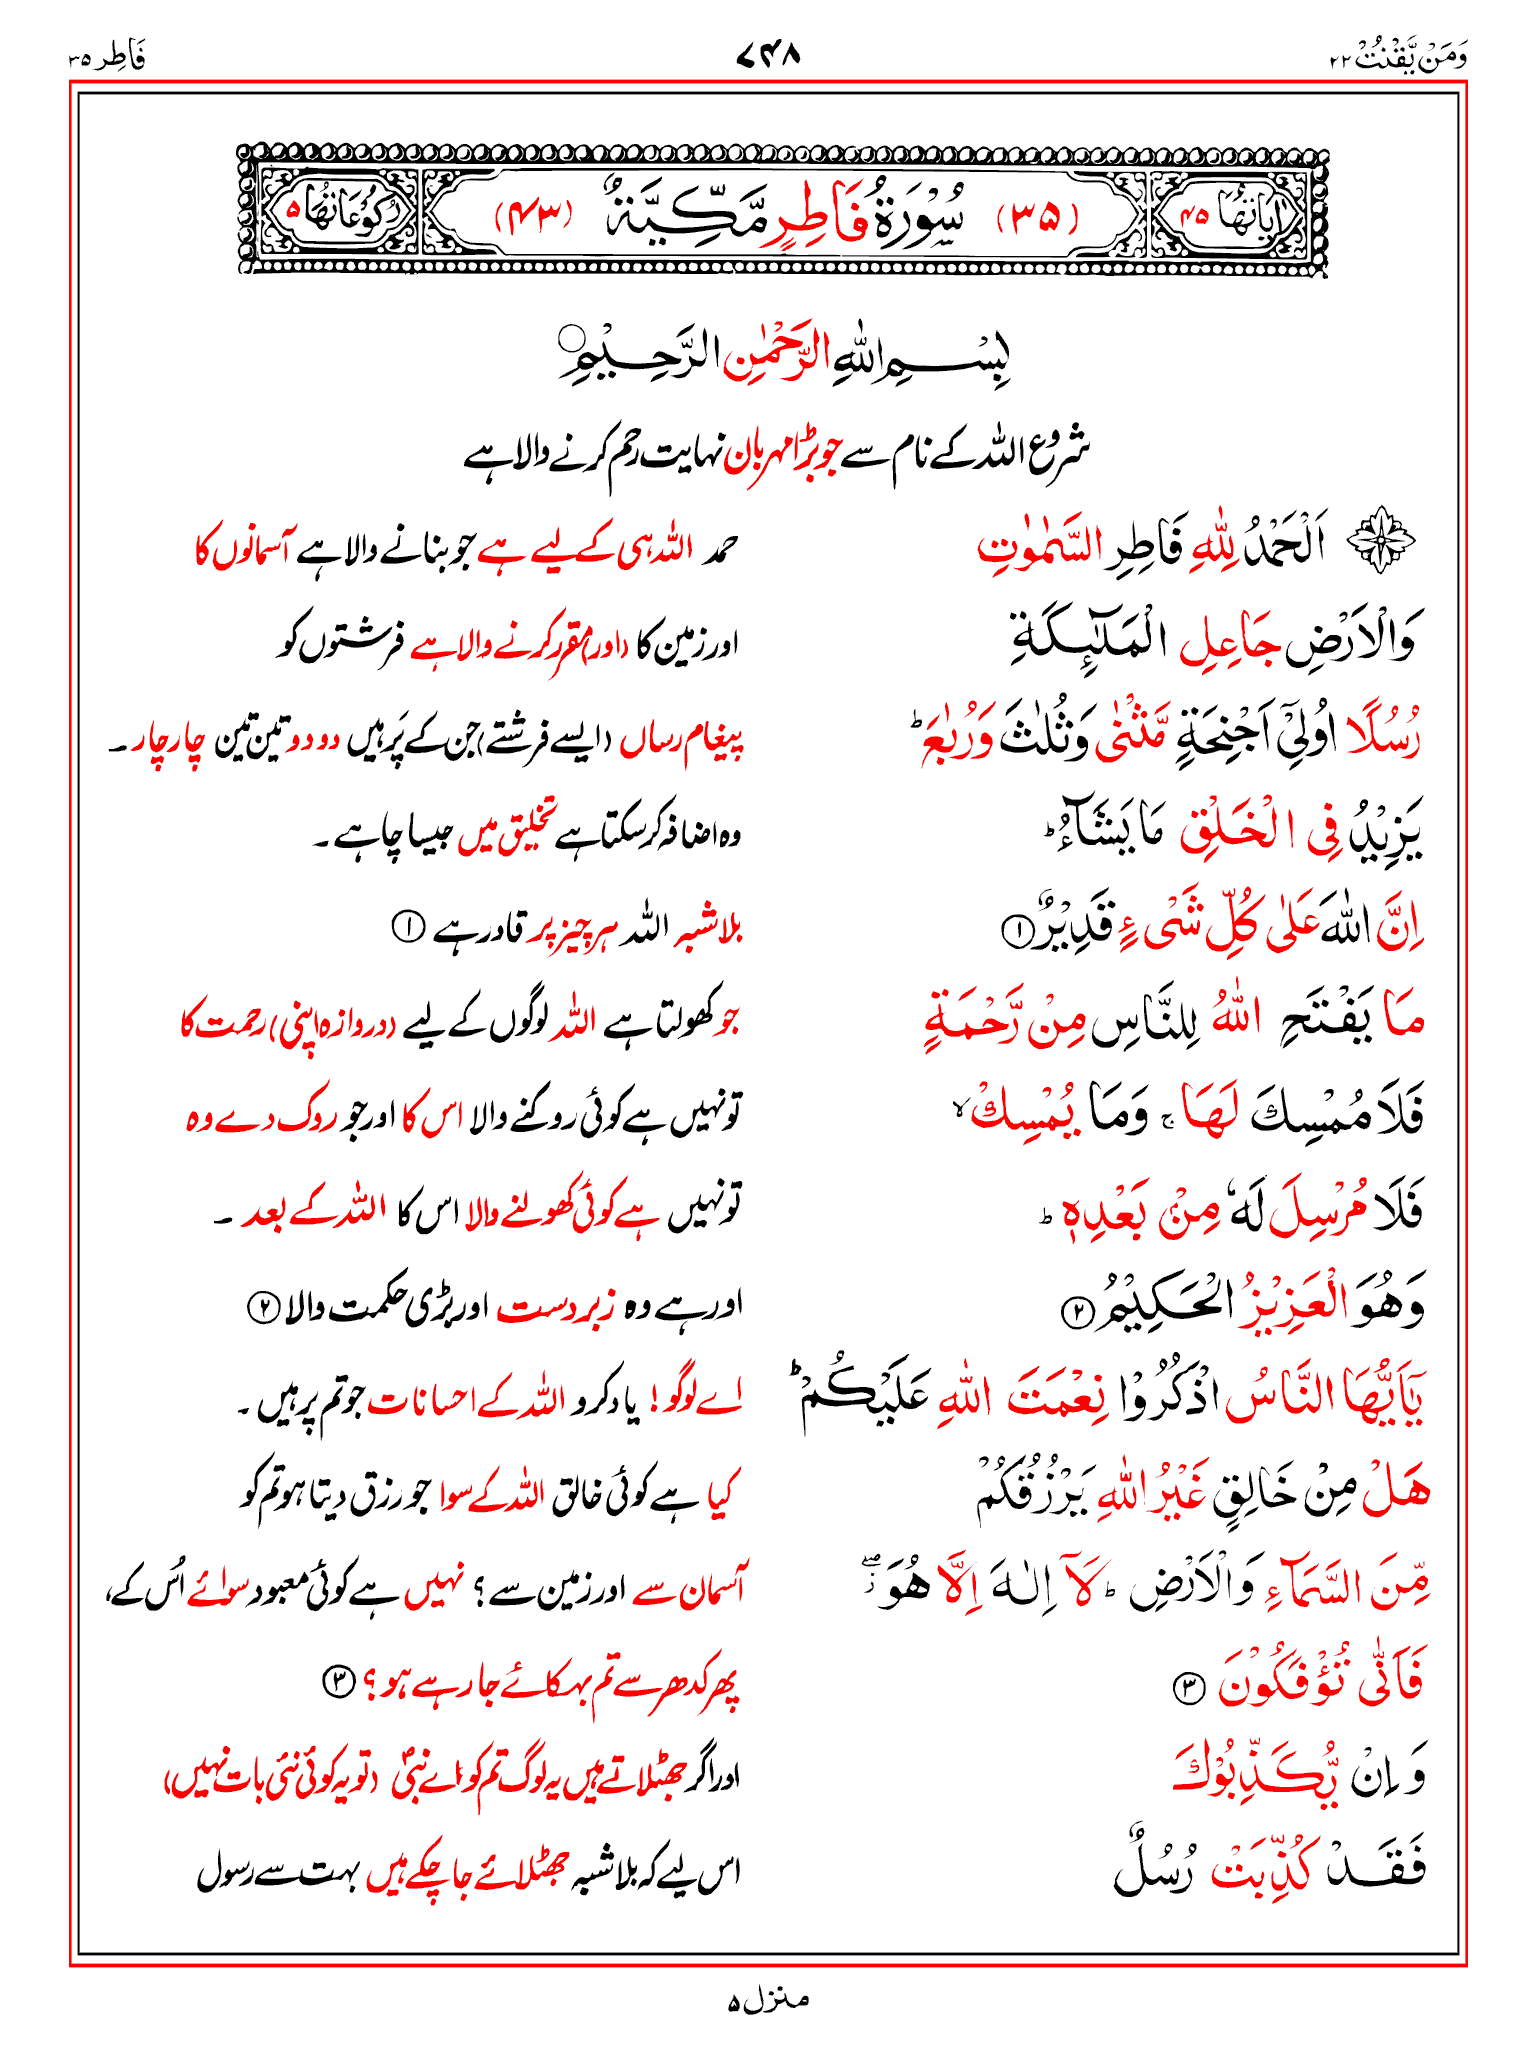 وَمَنْ يَّقْنُتْ ۲۲
۷۴۸
فَاطِر ۳۵
اٰیَاتُهَا ۴۵
(۳۵) سُوْرَةُ فَاطِرٍ مَّكِّيَّةٌ (۴۳)
رُكُوْعَاتُهَا ۵
بِسْمِ اللّٰهِ الرَّحْمٰنِ الرَّحِيْمِ ○
شروع اللہ کے نام سے جو بڑا مہربان نہایت رحم کرنے والا ہے
اَلْحَمْدُ لِلّٰهِ فَاطِرِ السَّمٰوٰتِ
حمد اللہ ہی کے لیے ہے جو بنانے والا ہے آسمانوں کا
وَالْاَرْضِ جَاعِلِ الْمَلٰٓئِكَةِ
اور زمین کا (اور) مقرر کرنے والا ہے فرشتوں کو
رُسُلًا اُولِيْٓ اَجْنِحَةٍ مَّثْنٰى وَثُلٰثَ وَرُبٰعَ ؕ
پیغام رساں (ایسے فرشتے) جن کے پَر ہیں دو دو تین تین چار چار ۔
يَزِيْدُ فِى الْخَلْقِ مَا يَشَآءُ ؕ
وہ اضافہ کر سکتا ہے تخلیق میں جیسا چاہے ۔
اِنَّ اللّٰهَ عَلٰى كُلِّ شَىْءٍ قَدِيْرٌ ۝۱
بلا شبہ اللہ ہر چیز پر قادر ہے ۝۱
مَا يَفْتَحِ اللّٰهُ لِلنَّاسِ مِنْ رَّحْمَةٍ
جو کھولتا ہے اللہ لوگوں کے لیے (دروازہ اپنی) رحمت کا
فَلَا مُمْسِكَ لَهَا ۚ وَمَا يُمْسِكْ ۙ
تو نہیں ہے کوئی روکنے والا اس کا اور جو روک دے وہ
فَلَا مُرْسِلَ لَهٗ مِنْ بَعْدِهٖ ؕ
تو نہیں ہے کوئی کھولنے والا اس کا اللہ کے بعد ۔
وَهُوَ الْعَزِيْزُ الْحَكِيْمُ ۝۲
اور ہے وہ زبردست اور بڑی حکمت والا ۝۲
يٰٓاَيُّهَا النَّاسُ اذْكُرُوْا نِعْمَتَ اللّٰهِ عَلَيْكُمْ ؕ
اے لوگو! یاد کرو اللہ کے احسانات جو تم پر ہیں ۔
هَلْ مِنْ خَالِقٍ غَيْرُ اللّٰهِ يَرْزُقُكُمْ
کیا ہے کوئی خالق اللہ کے سوا جو رزق دیتا ہو تم کو
مِّنَ السَّمَآءِ وَالْاَرْضِ ؕ لَآ اِلٰهَ اِلَّا هُوَ ۖ ز
آسمان سے اور زمین سے؟ نہیں ہے کوئی معبود سوائے اُس کے،
فَاَنّٰى تُؤْفَكُوْنَ ۝۳
پھر کدھر سے تم بہکائے جا رہے ہو؟ ۝۳
وَاِنْ يُّكَذِّبُوْكَ
اور اگر جھٹلاتے ہیں یہ لوگ تم کو اے نبیؐ (تو یہ کوئی نئی بات نہیں)
فَقَدْ كُذِّبَتْ رُسُلٌ
اس لیے کہ بلا شبہ جھٹلائے جا چکے ہیں بہت سے رسول
منزل ۵